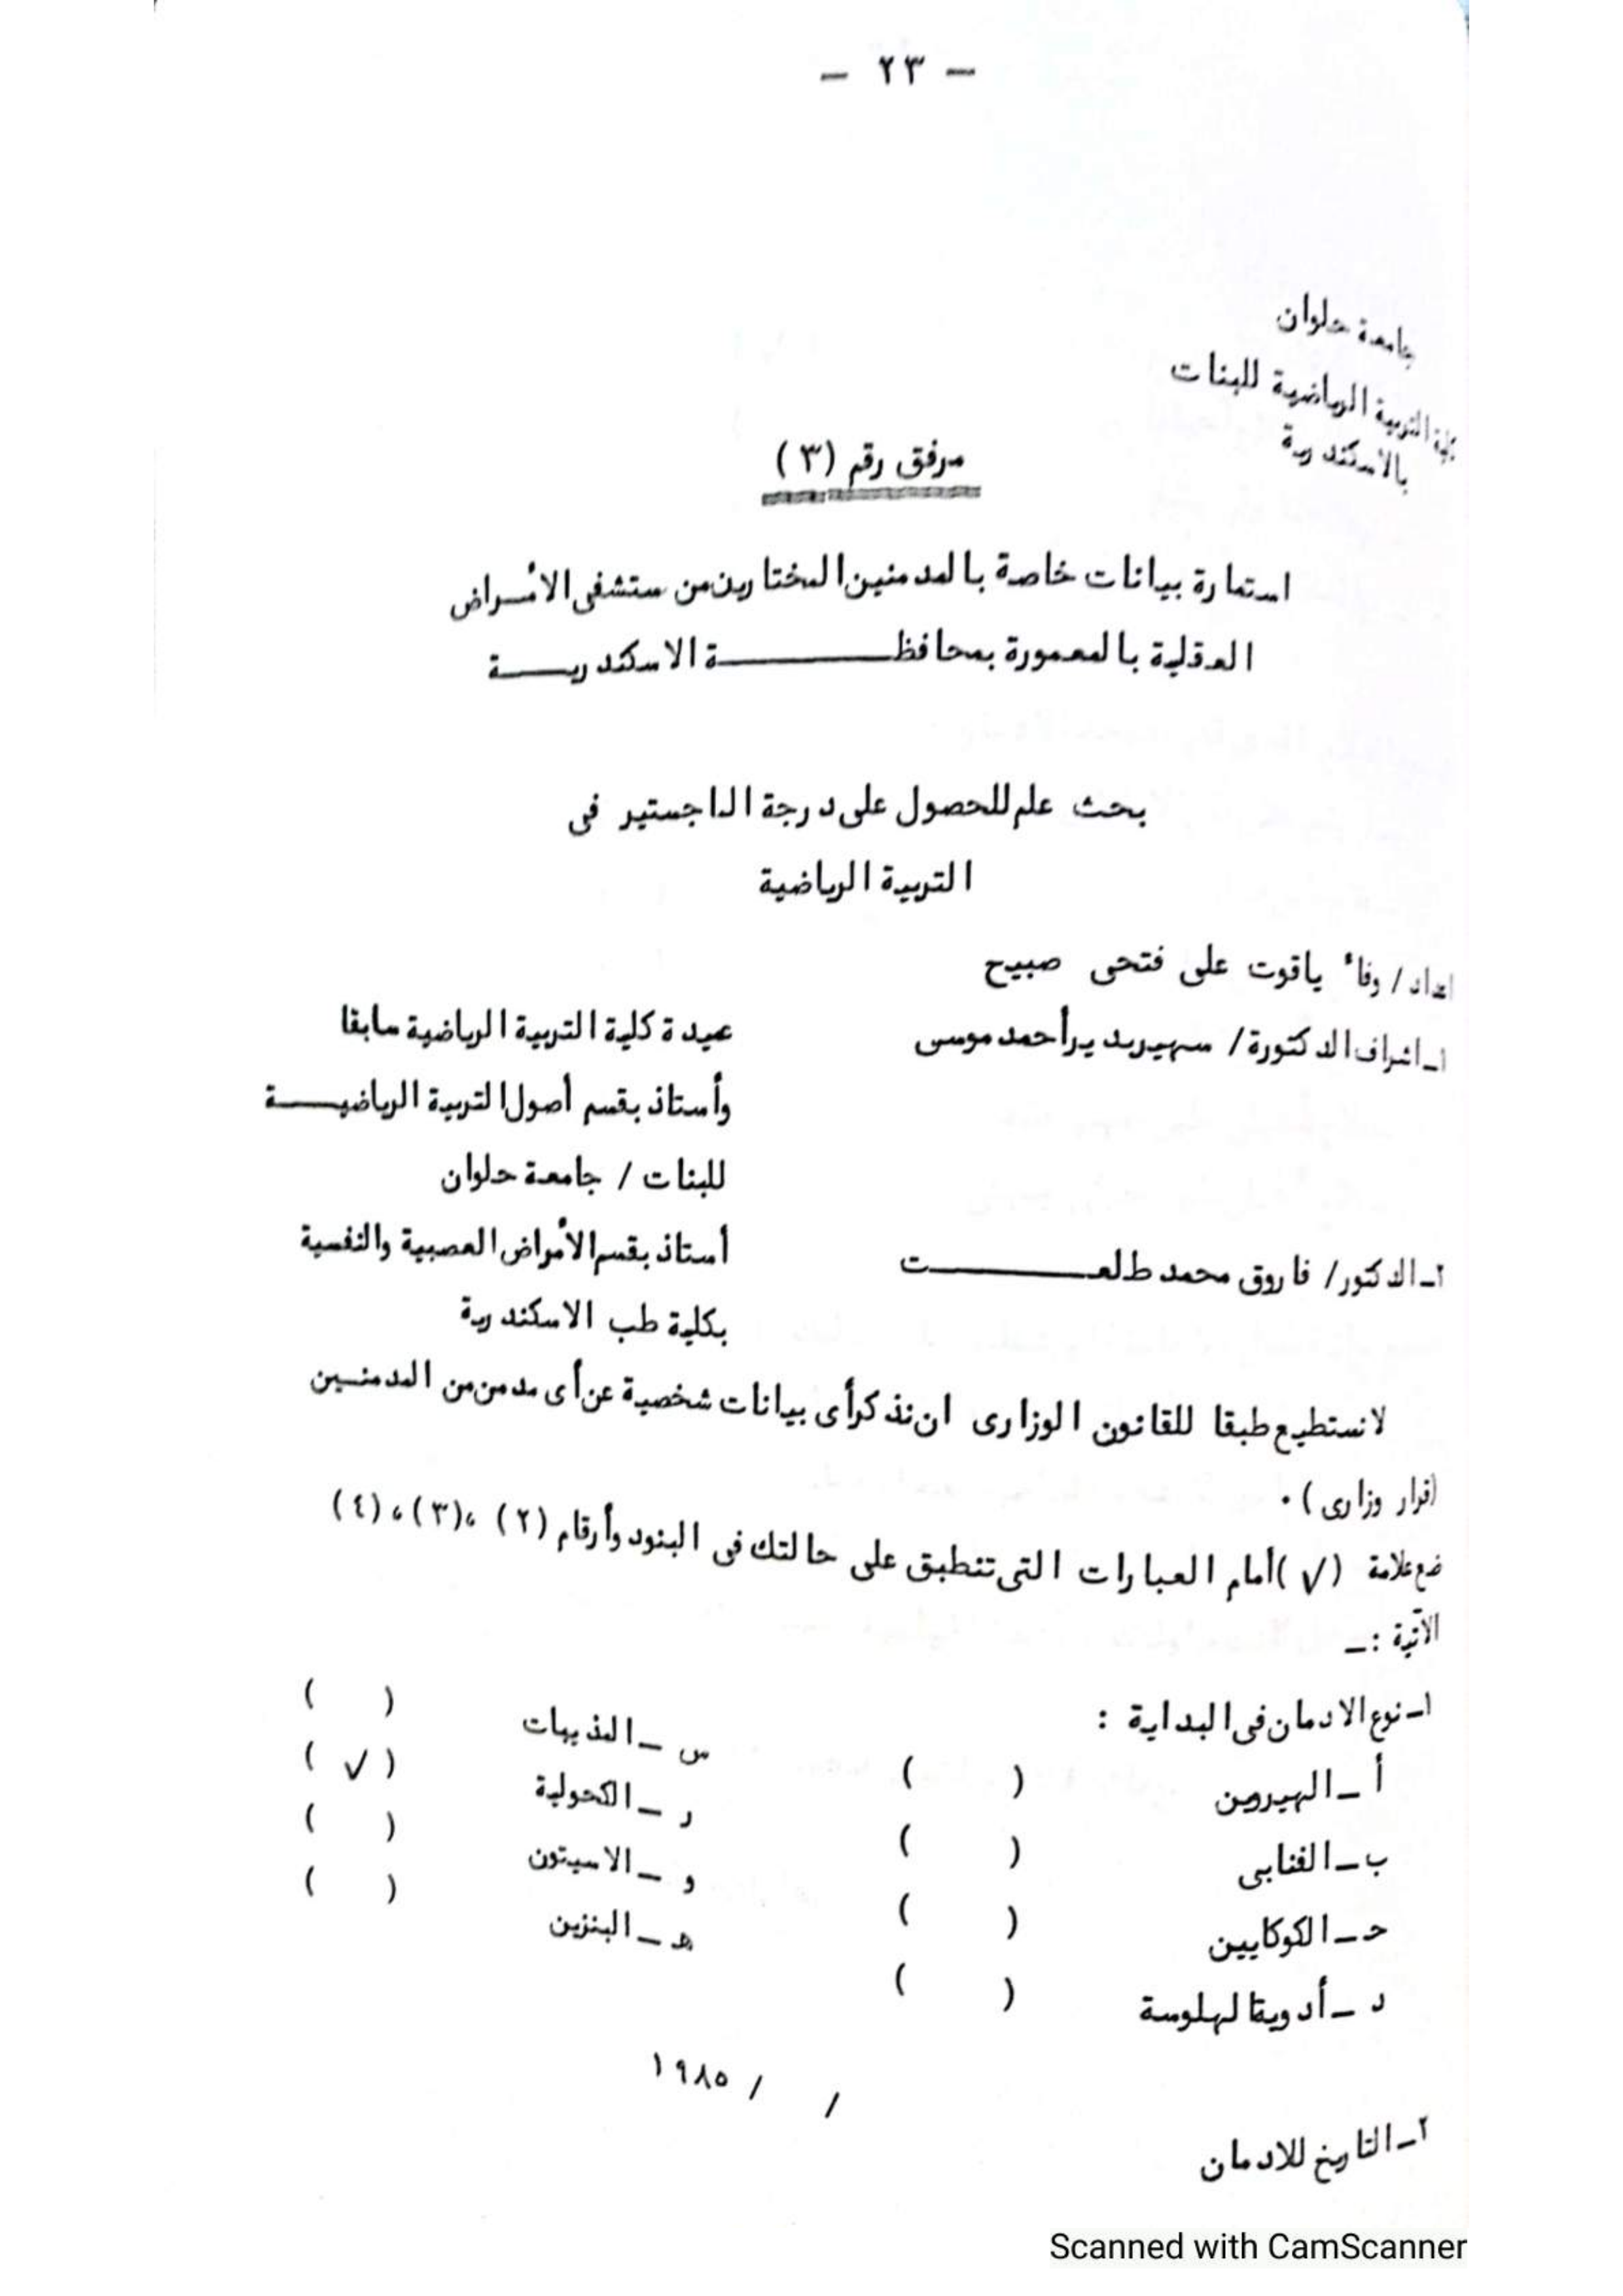 — ٢٣ —
جامعة حلوان
كلية التربية الرياضية للبنات
بالاسكندرية
مرفق رقم (٣)
استمارة بيانات خاصة بالمدمنين المختارين من مستشفى الأمــراض
العقلية بالمعمورة بمحافظــــــــة الاسكندريــــة
بحث علم للحصول على درجة الماجستير فى
التربية الرياضية
اعداد / وفاء ياقوت على فتحى صبيح
١ــ اشراف الدكتورة / سهير بدير أحمد موسى
عميدة كلية التربية الرياضية سابقا
وأستاذ بقسم أصول التربية الرياضيــــة
للبنات / جامعة حلوان
٢ــ الدكتور / فاروق محمد طلعــــــــت
أستاذ بقسم الأمراض العصبية والنفسية
بكلية طب الاسكندرية
لانستطيع طبقا للقانون الوزارى ان نذكر أى بيانات شخصية عن أى مدمن من المدمنــين
(قرار وزارى) .
ضع علامة ( √ ) أمام العبارات التى تنطبق على حالتك فى البنود وأرقام (٢) ،(٣)،(٤)
الآتية :ــ
١ــ نوع الادمان فى البداية :
أ ــ الهيروين ( )
ب ــ القنابى ( )
حـ ــ الكوكايين ( )
د ــ أدوية الهلوسة ( )
س ــ المذيبات ( )
ر ــ الكحولية ( √ )
و ــ الاسيتون ( )
هـ ــ البنزين ( )
٢ــ التاريخ للادمان / / ١٩٨٥
Scanned with CamScanner